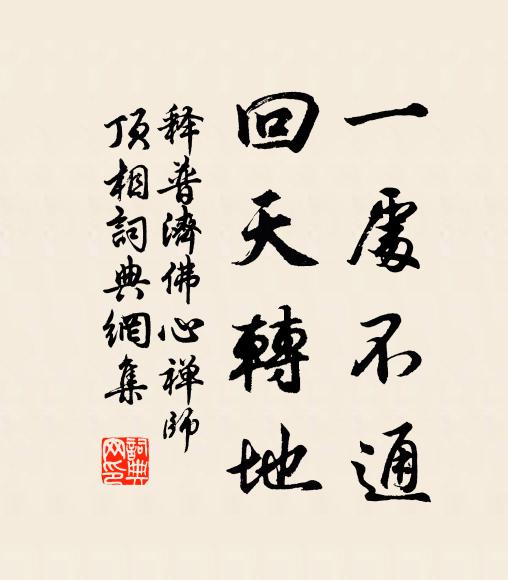 一處不通
回天轉地
释普濟佛心禅師
頂相詞典網集
詞典
网印